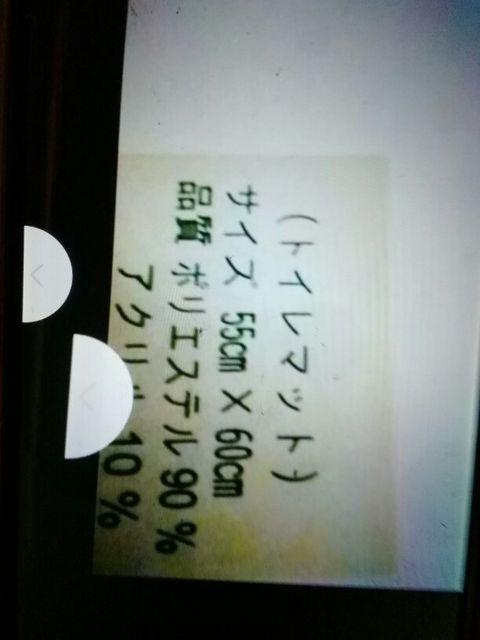 (トイレマット)
サイズ 55cm × 60cm
品質 ポリエステル 90 %
アクリル 10 %